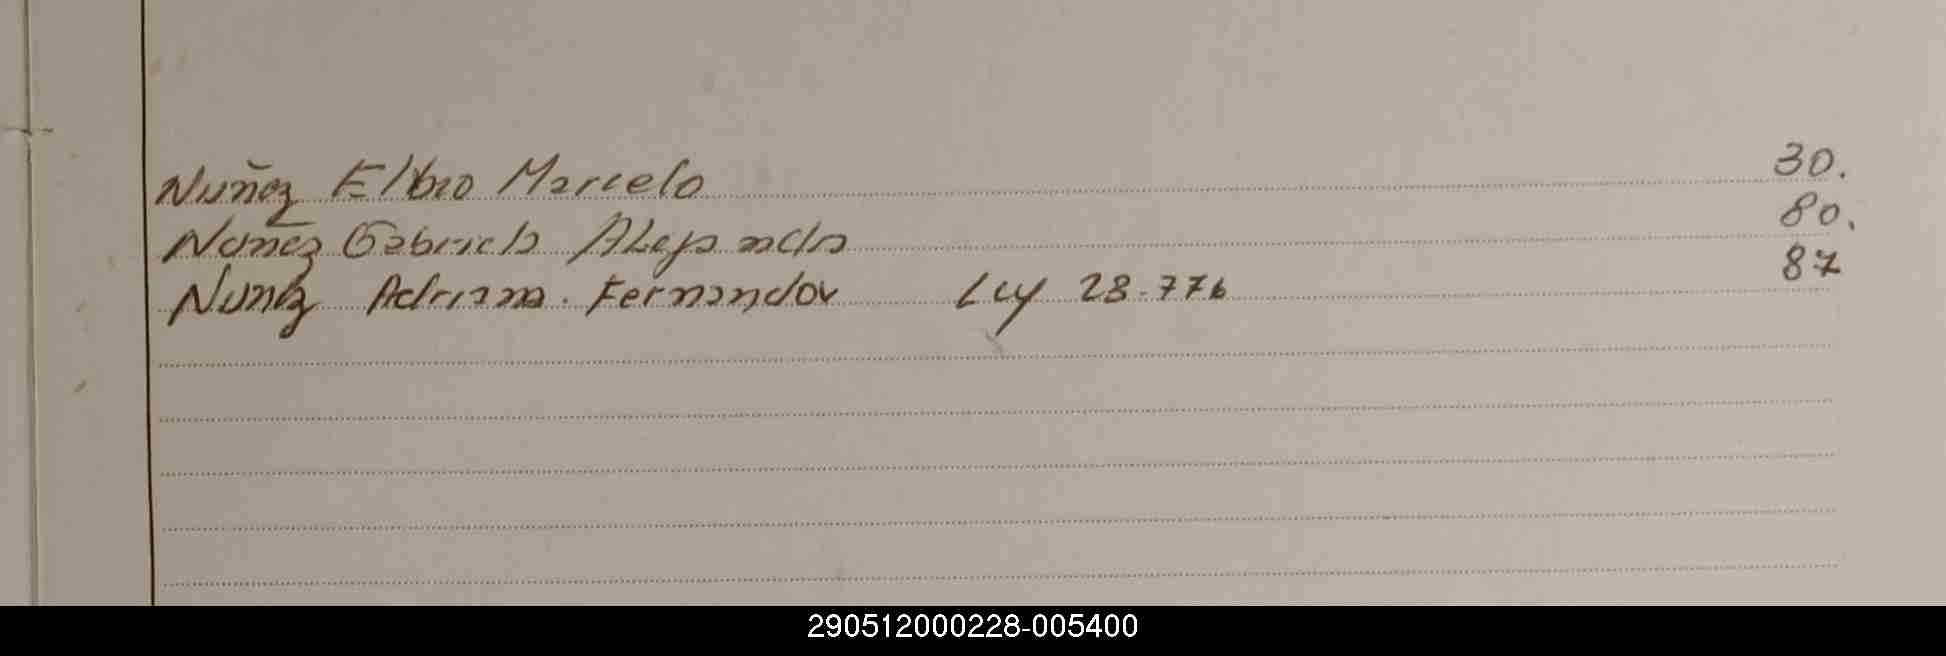 Nuñez Elbio Marcelo 30.
Nuñez Gabriela Alejandra 80.
Nuñez Adriana. Fernandor Ley 28.776 87
290512000228-005400